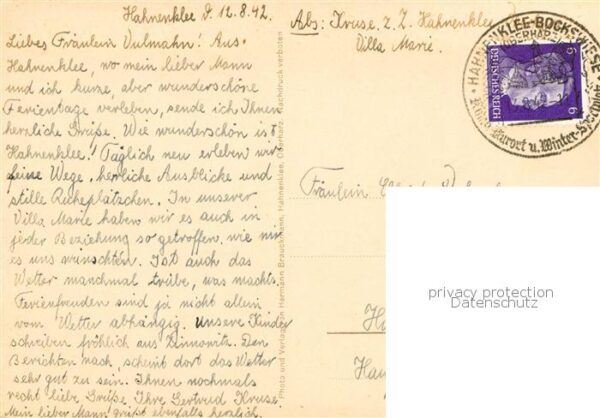 Hahnenklee d. 12.8.42.
Abs: Kruse, z. Z. Hahnenklee
Villa Marie.
Liebes Fräulein Vulmahn! Aus
Hahnenklee, wo mein lieber Mann
und ich kurze, aber wunderschöne
Ferientage verleben, sende ich Ihnen
herzliche Grüße. Wie wunderschön ist
Hahnenklee! Täglich neu erleben wir
feine Wege, herrliche Ausblicke und
stille Ruheplätzchen. In unserer
Villa Marie haben wir es auch in
jeder Beziehung so getroffen, wie wir
es uns wünschten. Ist auch das
Wetter manchmal trübe, was machts.
Ferienfreuden sind ja nicht allein
vom Wetter abhängig. Unsere Kinder
schreiben fröhlich aus Zinnowitz. Den
Berichten nach, scheint dort das Wetter
sehr gut zu sein. Ihnen nochmals
recht liebe Grüße Ihre Gertrud Kruse.
Mein lieber Mann grüßt ebenfalls herzlich.
Photo und Verlag von Hermann Brauckmann, Hahnenklee, Oberharz. Nachdruck verboten
HAHNENKLEE-BOCKSWIESE
OBERHARZ
Kurort u. Winter-Sportplatz
6 6
DEUTSCHES REICH
Fräulein
privacy protection
Datenschutz